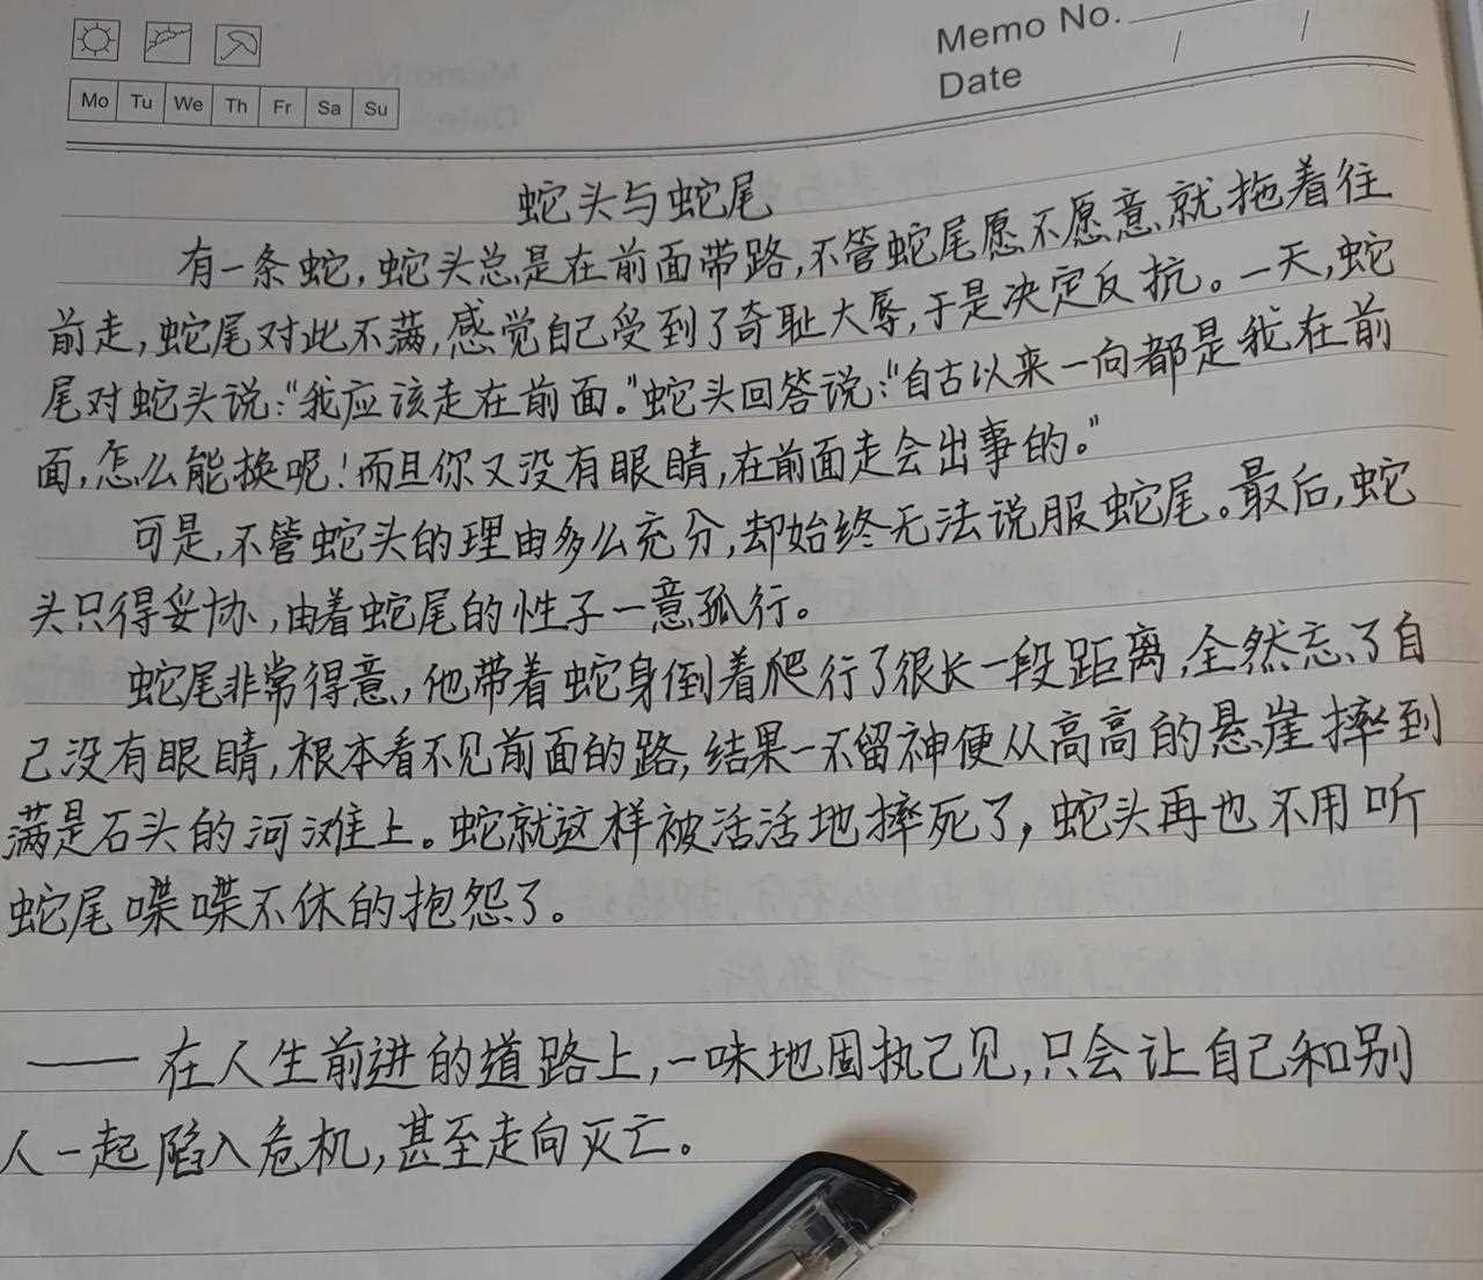 Memo No.
Date / /
Mo Tu We Th Fr Sa Su
蛇头与蛇尾
有一条蛇,蛇头总是在前面带路,不管蛇尾愿不愿意,就拖着往
前走,蛇尾对此不满,感觉自己受到了奇耻大辱,于是决定反抗。一天,蛇
尾对蛇头说:"我应该走在前面。"蛇头回答说:"自古以来一向都是我在前
面,怎么能换呢!而且你又没有眼睛,在前面走会出事的。"
可是,不管蛇头的理由多么充分,却始终无法说服蛇尾。最后,蛇
头只得妥协,由着蛇尾的性子一意孤行。
蛇尾非常得意,他带着蛇身倒着爬行了很长一段距离,全然忘了自
己没有眼睛,根本看不见前面的路,结果一不留神便从高高的悬崖摔到
满是石头的河滩上。蛇就这样被活活地摔死了,蛇头再也不用听
蛇尾喋喋不休的抱怨了。
——在人生前进的道路上,一味地固执己见,只会让自己和别
人一起陷入危机,甚至走向灭亡。